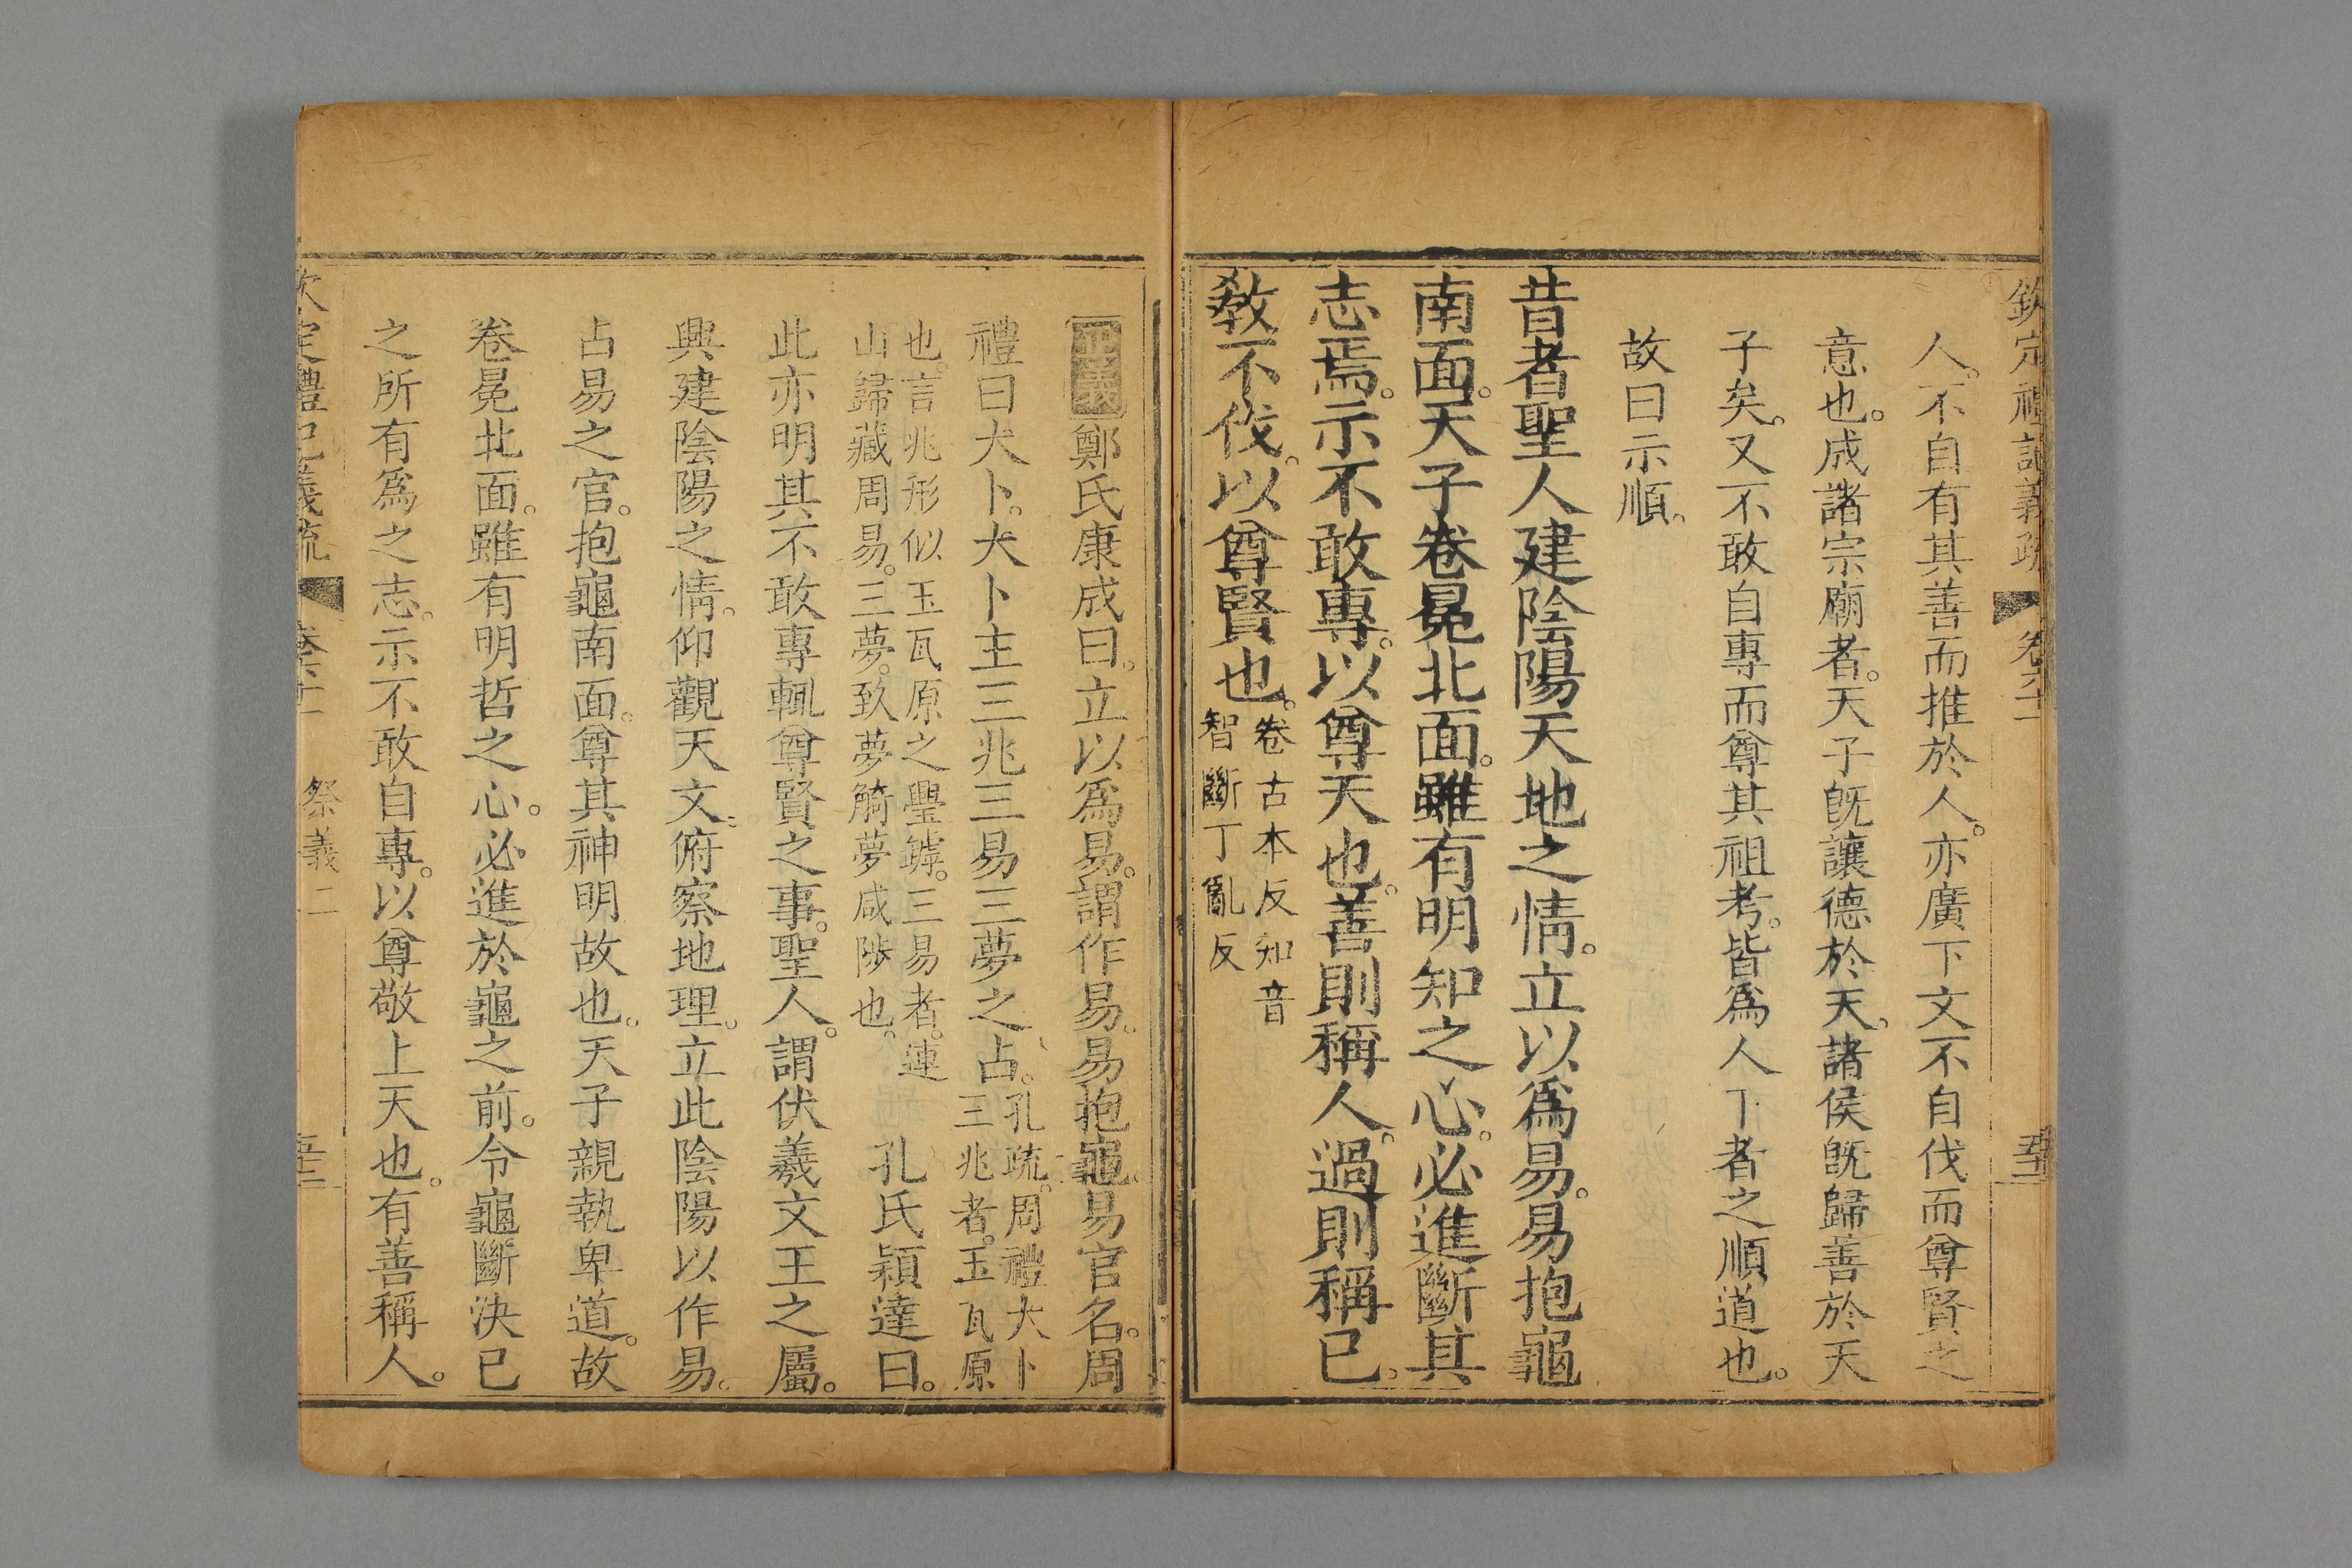 欽定禮記義疏 卷六十一 五十二
人。不自有其善而推於人。亦廣下文不自伐而尊賢之
意也。成諸宗廟者。天子旣讓德於天。諸侯旣歸善於天
子矣。又不敢自專而尊其祖考。皆爲人下者之順道也。
故曰示順。
昔者聖人建陰陽天地之情。立以爲易。易抱龜
南面。天子卷冕北面。雖有明知之心。必進斷其
志焉。示不敢專。以尊天也。善則稱人。過則稱已。
敎不伐。以尊賢也。
卷古本反知音
智斷丁亂反
正義鄭氏康成曰。立以爲易。謂作易。易抱龜。易官名。周
禮曰大卜。大卜主三兆三易三夢之占。
孔疏。周禮大卜
三兆者。玉瓦原
也。言兆形似玉瓦原之璺罅。三易者。連
山歸藏周易。三夢。致夢觭夢咸陟也。
孔氏穎達曰。
此亦明其不敢專輒尊賢之事。聖人。謂伏羲文王之屬。
興建陰陽之情。仰觀天文。俯察地理。立此陰陽以作易。
占易之官。抱龜南面。尊其神明故也。天子親執卑道。故
卷冕北面。雖有明哲之心。必進於龜之前。令龜斷決已
之所有爲之志。示不敢自專。以尊敬上天也。有善稱人。
欽定禮記義疏 卷六十一 祭義二 五十三